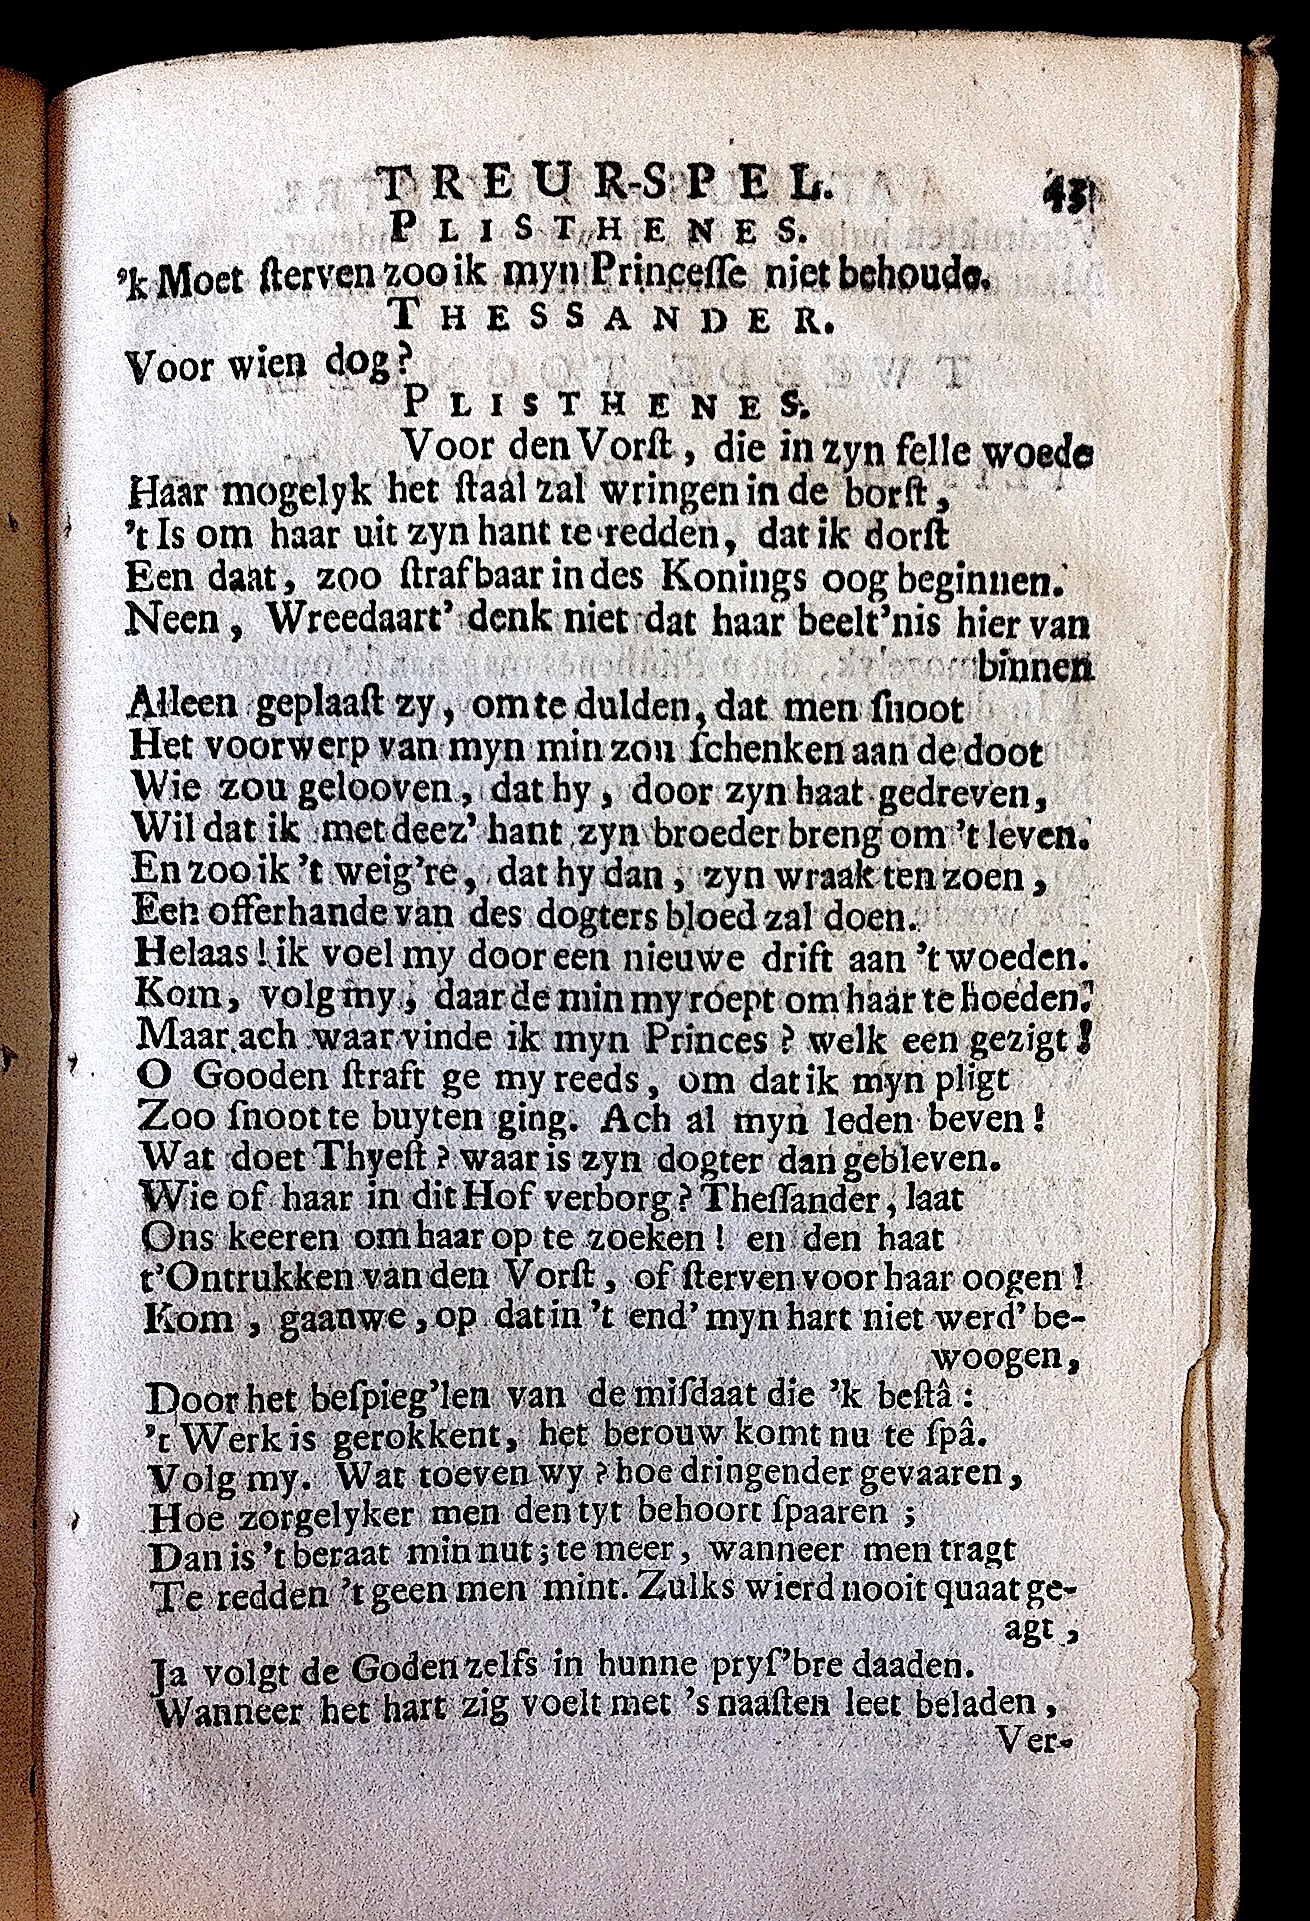 TREUR-SPEL. 43
PLISTHENES.
'k Moet ſterven zoo ik myn Princeſſe niet behoude.
THESSANDER.
Voor wien dog?
PLISTHENES.
Voor den Vorſt, die in zyn felle woede
Haar mogelyk het ſtaal zal wringen in de borſt,
't Is om haar uit zyn hant te redden, dat ik dorſt
Een daat, zoo ſtrafbaar in des Konings oog beginnen.
Neen, Wreedaart' denk niet dat haar beelt'nis hier van
binnen
Alleen geplaaſt zy, om te dulden, dat men ſnoot
Het voorwerp van myn min zou ſchenken aan de doot
Wie zou gelooven, dat hy, door zyn haat gedreven,
Wil dat ik met deez' hant zyn broeder breng om 't leven.
En zoo ik 't weig're, dat hy dan, zyn wraak ten zoen,
Een offerhande van des dogters bloed zal doen.
Helaas! ik voel my door een nieuwe drift aan 't woeden.
Kom, volg my, daar de min my roept om haar te hoeden.
Maar ach waar vinde ik myn Princes? welk een gezigt!
O Gooden ſtraft ge my reeds, om dat ik myn pligt
Zoo ſnoot te buyten ging. Ach al myn leden beven!
Wat doet Thyeſt? waar is zyn dogter dan gebleven.
Wie of haar in dit Hof verborg? Theſſander, laat
Ons keeren om haar op te zoeken! en den haat
t'Ontrukken van den Vorſt, of ſterven voor haar oogen!
Kom, gaan we, op dat in 't end' myn hart niet werd' be-
woogen,
Door het beſpieg'len van de miſdaat die 'k beſtâ:
't Werk is gerokkent, het berouw komt nu te ſpâ.
Volg my. Wat toeven wy? hoe dringender gevaaren,
Hoe zorgelyker men den tyt behoort ſpaaren;
Dan is 't beraat min nut; te meer, wanneer men tragt
Te redden 't geen men mint. Zulks wierd nooit quaat ge-
agt,
Ja volgt de Goden zelfs in hunne pryſ'bre daaden.
Wanneer het hart zig voelt met 's naaſten leet beladen,
Ver-